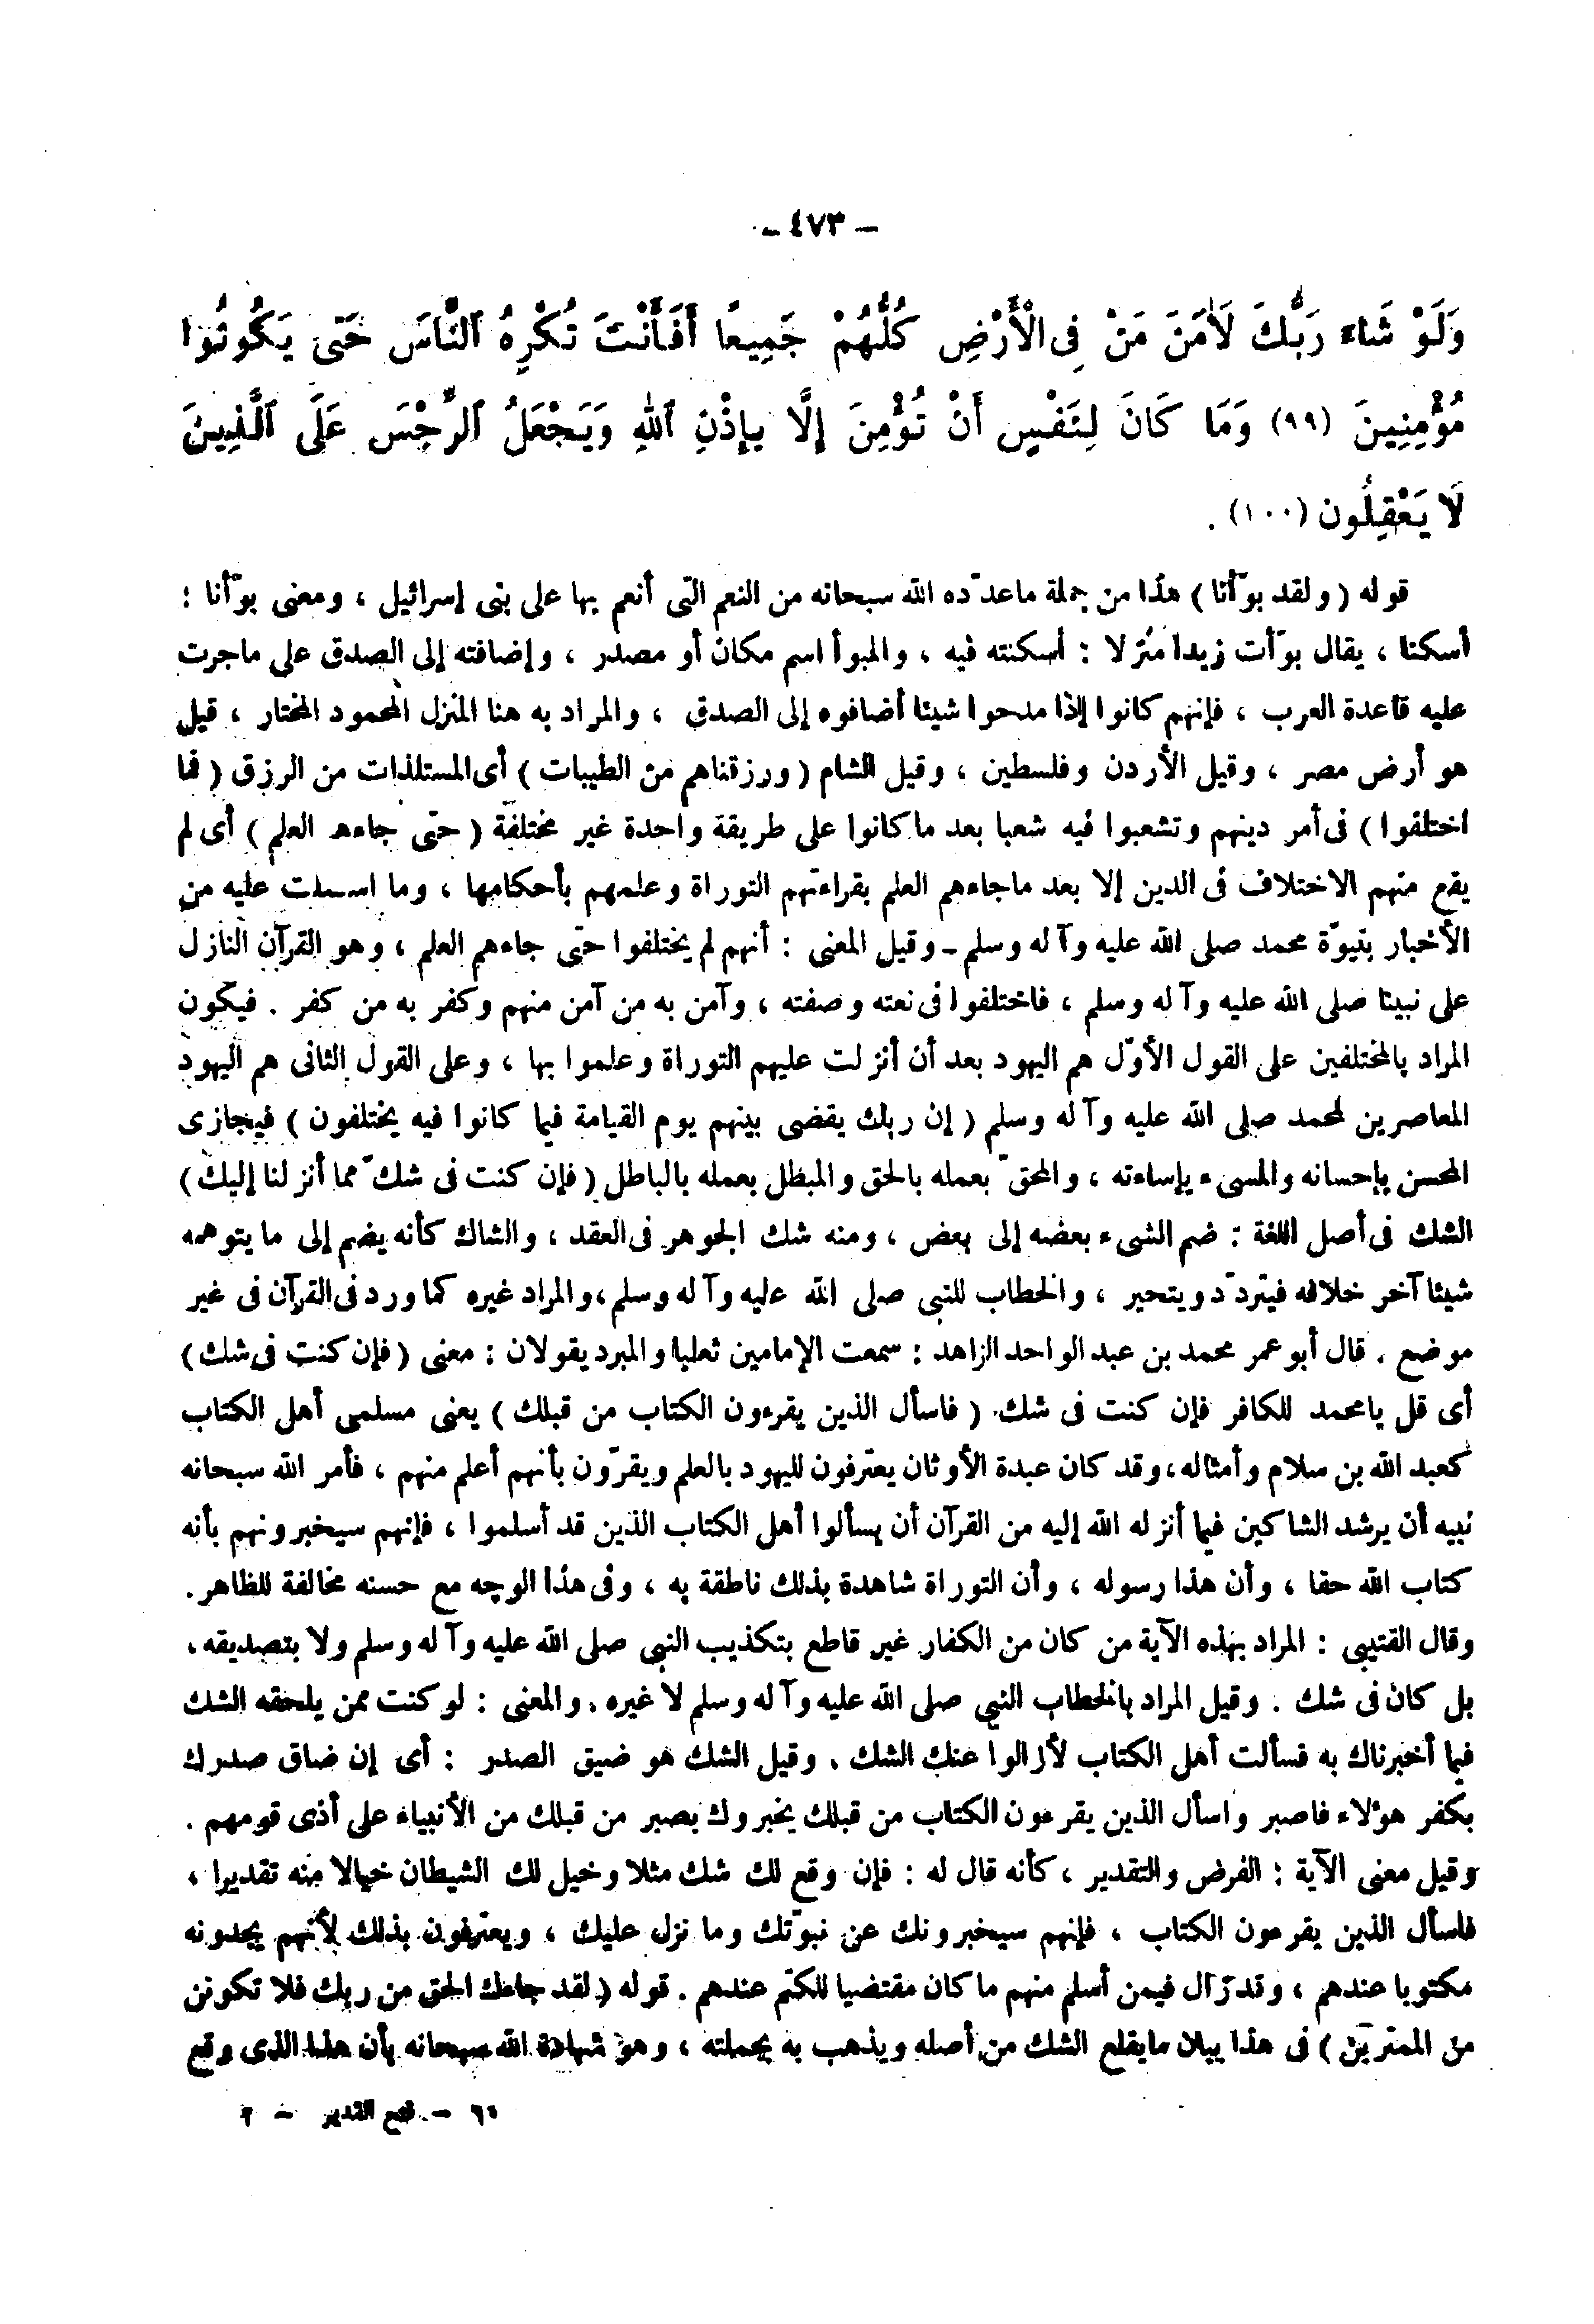 - ٤٧٣ -
وَلَوْ شَاءَ رَبُّكَ لَآمَنَ مَنْ فِى الْأَرْضِ كُلُّهُمْ جَمِيعًا أَفَأَنْتَ تُكْرِهُ ٱلنَّاسَ حَتَّى يَكُونُوا
مُؤْمِنِينَ (٩٩) وَمَا كَانَ لِنَفْسٍ أَنْ تُؤْمِنَ إِلَّا بِإِذْنِ ٱللهِ وَيَجْعَلُ ٱلرِّجْسَ عَلَى ٱلَّذِينَ
لَا يَعْقِلُون (١٠٠) .
قوله ( ولقد بوّأنا ) هذا من جملة ماعدّده الله سبحانه من النعم التى أنعم بها على بنى إسرائيل ، ومعنى بوّأنا :
أسكنا ، يقال بوّأت زيدا منزلا : أسكنته فيه ، والمبوأ اسم مكان أو مصدر ، وإضافته إلى الصدق على ماجرت
عليه قاعدة العرب ، فإنهم كانوا إذا مدحوا شيئا أضافوه إلى الصدق ، والمراد به هنا المنزل المحمود المختار ، قيل
هو أرض مصر ، وقيل الأردن وفلسطين ، وقيل الشام ( ورزقناهم من الطيبات ) أى المستلذات من الرزق ( فما
اختلفوا ) فى أمر دينهم وتشعبوا فيه شعبا بعد ما كانوا على طريقة واحدة غير مختلفة ( حتى جاءهم العلم ) أى لم
يقع منهم الاختلاف فى الدين إلا بعد ماجاءهم العلم بقراءتهم التوراة وعلمهم بأحكامها ، وما اشتملت عليه من
الأخبار بنبوّة محمد صلى الله عليه وآ له وسلم - وقيل المعنى : أنهم لم يختلفوا حتى جاءهم العلم ، وهو القرآن النازل
على نبينا صلى الله عليه وآ له وسلم ، فاختلفوا فى نعته وصفته ، وآمن به من آمن منهم وكفر به من كفر . فيكون
المراد بالمختلفين على القول الأوّل هم اليهود بعد أن أنزلت عليهم التوراة وعلموا بها ، وعلى القول الثانى هم اليهود
المعاصرين لمحمد صلى الله عليه وآ له وسلم ( إن ربك يقضى بينهم يوم القيامة فيما كانوا فيه يختلفون ) فيجازى
المحسن بإحسانه والمسىء بإساءته ، والمحقّ بعمله بالحق والمبطل بعمله بالباطل ( فإن كنت فى شكّ مما أنزلنا إليك )
الشك فى أصل اللغة : ضم الشىء بعضه إلى بعض ، ومنه شك الجوهر فى العقد ، والشاك كأنه يضم إلى ما يتوهمه
شيئا آخر خلافه فيتردّد ويتحير ، والخطاب للنبى صلى الله عليه وآ له وسلم ، والمراد غيره كما ورد فى القرآن فى غير
موضع . قال أبو عمر محمد بن عبد الواحد الزاهد : سمعت الإمامين ثعلبا والمبرد يقولان : معنى ( فإن كنت فى شك )
أى قل يامحمد للكافر فإن كنت فى شك ( فاسأل الذين يقرءون الكتاب من قبلك ) يعنى مسلمى أهل الكتاب
كعبد الله بن سلام وأمثاله ، وقد كان عبدة الأوثان يعترفون لليهود بالعلم ويقرّون بأنهم أعلم منهم ، فأمر الله سبحانه
نبيه أن يرشد الشاكين فيما أنزله الله إليه من القرآن أن يسألوا أهل الكتاب الذين قد أسلموا ، فإنهم سيخبرونهم بأنه
كتاب الله حقا ، وأن هذا رسوله ، وأن التوراة شاهدة بذلك ناطقة به ، وفى هذا الوجه مع حسنه مخالفة للظاهر .
وقال القتيبى : المراد بهذه الآية من كان من الكفار غير قاطع بتكذيب النبى صلى الله عليه وآ له وسلم ولا بتصديقه ،
بل كان فى شك . وقيل المراد بالخطاب النبى صلى الله عليه وآ له وسلم لا غيره . والمعنى : لو كنت ممن يلحقه الشك
فيما أخبرناك به فسألت أهل الكتاب لأزالوا عنك الشك . وقيل الشك هو ضيق الصدر : أى إن ضاق صدرك
بكفر هؤلاء فاصبر واسأل الذين يقرءون الكتاب من قبلك يخبروك بصبر من قبلك من الأنبياء على أذى قومهم .
وقيل معنى الآية : الفرض والتقدير ، كأنه قال له : فإن وقع لك شك مثلا وخيل لك الشيطان خيالا منه تقديرا ،
فاسأل الذين يقرءون الكتاب ، فإنهم سيخبرونك عن نبوّتك وما نزل عليك ، ويعترفون بذلك لأنهم يجدونه
مكتوبا عندهم ، وقد زال فيمن أسلم منهم ما كان مقتضيا للكتم عندهم . قوله ( لقد جاءك الحق من ربك فلا تكونن
من الممترين ) فى هذا بيان مايقلع الشك من أصله ويذهب به بجملته ، وهو شهادة الله سبحانه بأن هذا الذى وقع
٦٠ - فتح القدير - ٢